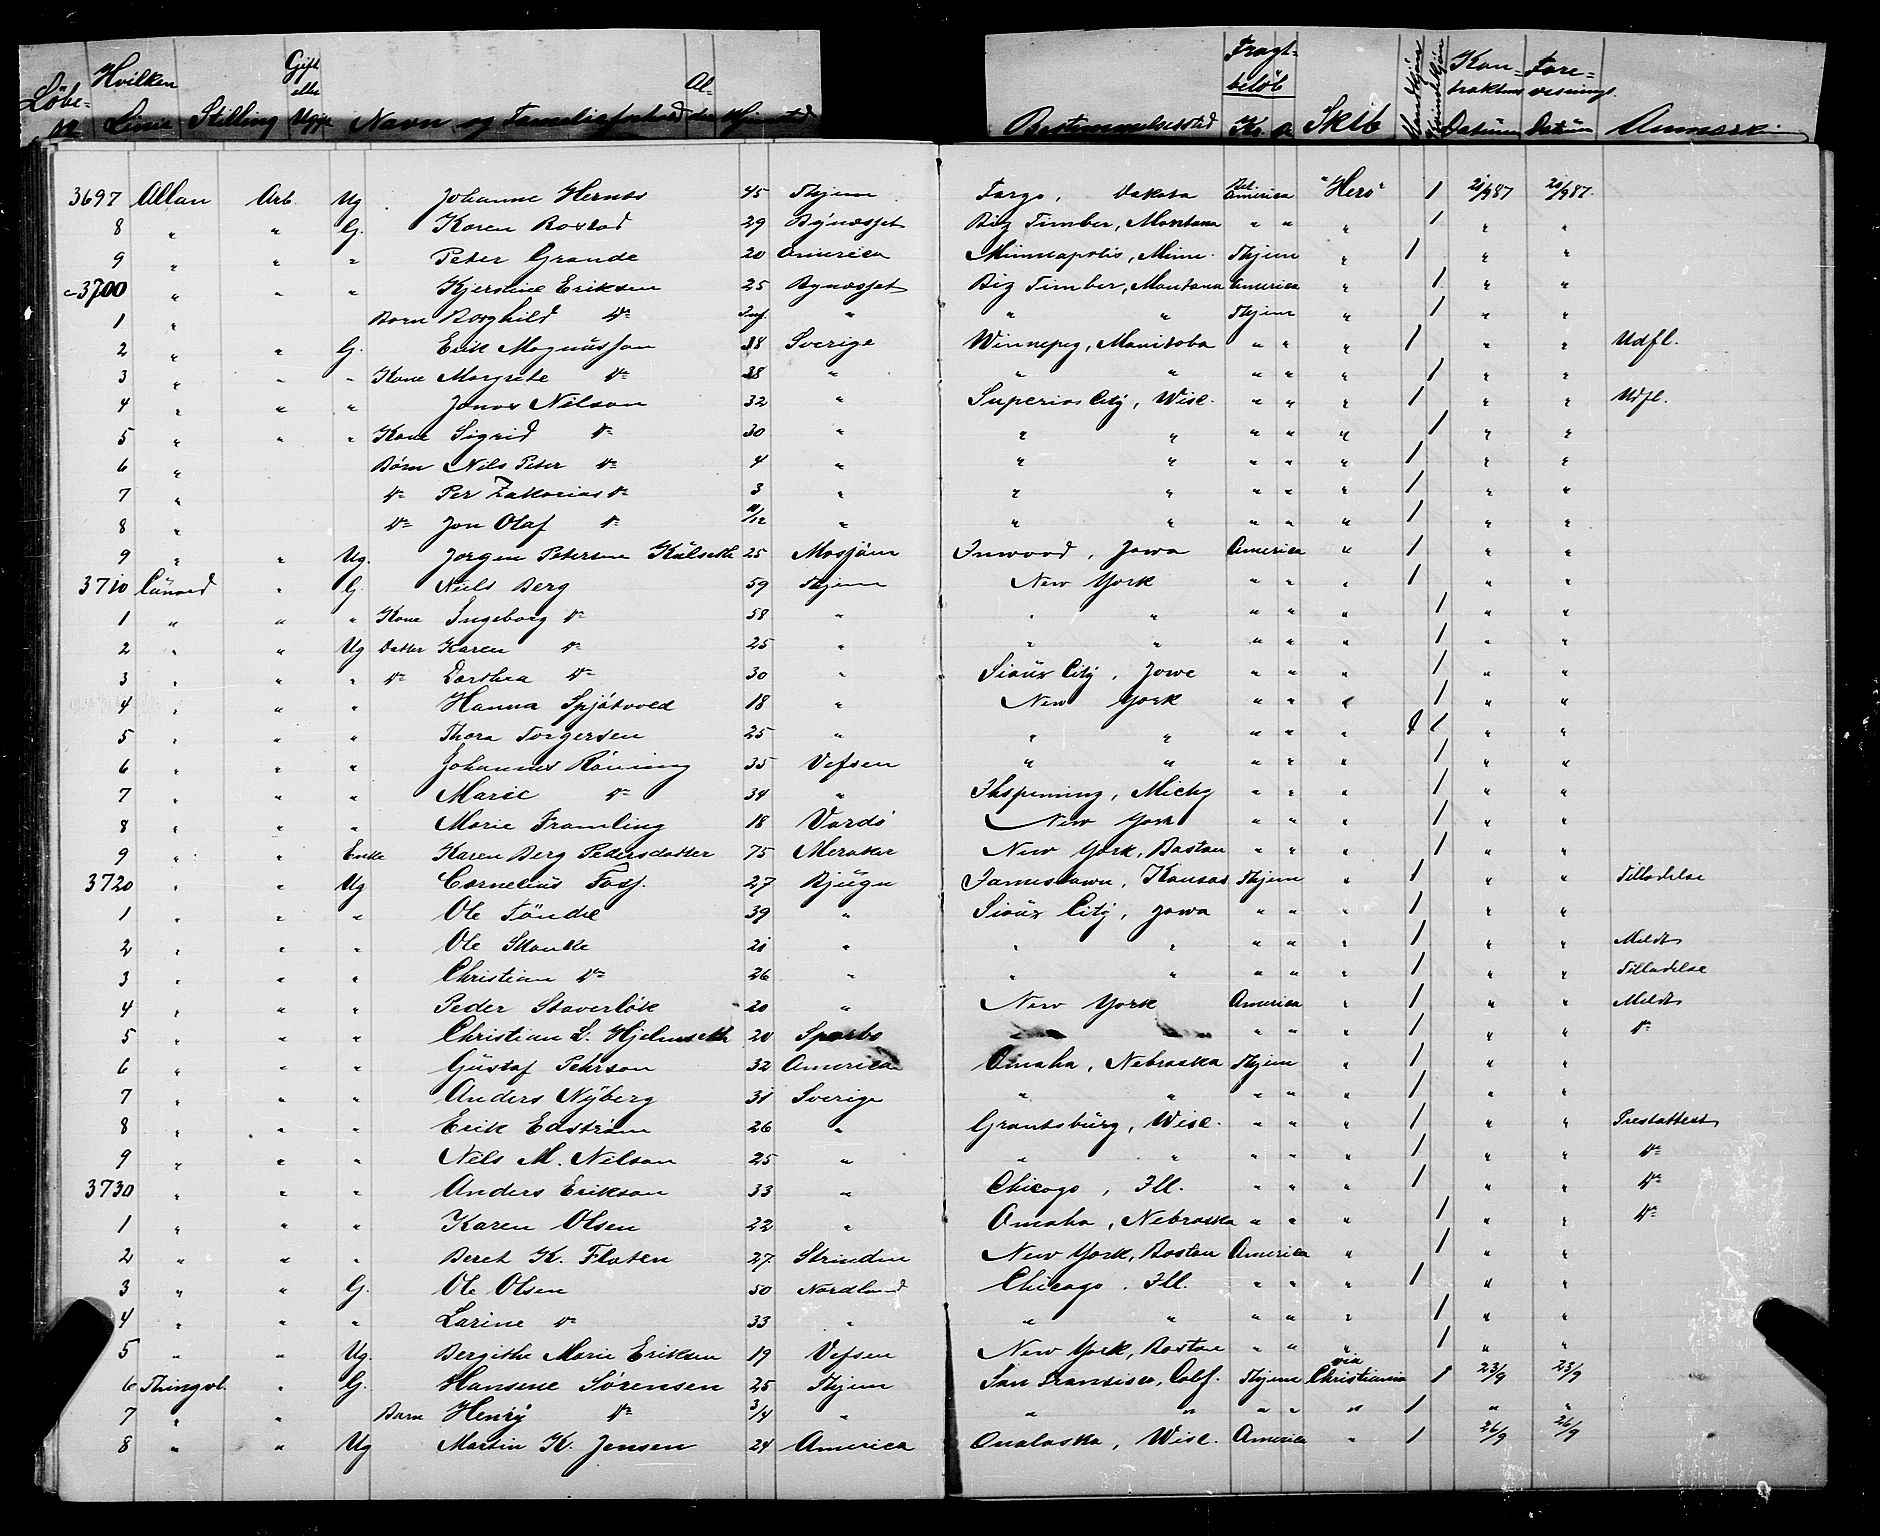 Löbe- Hvilken Linie Stilling Gift eller Ugift Navn og Familieforhold Al- der Hjemsted Bestemmelsessted Fragt- beløb Kr. ø Skib Mandkjön Kvindekjön Kon- traktens Datum Fore- visnings Datum Anmærkn
3697 Allan Arb. Ug Johanne Hernes 45 Thjem Fargo, Dakota Bet. America "Hero" 1 21/9 87 21/9 87.
8 " " G. Karen Boxtad 29 Bynæsset Big Timber, Montana " " " 1 " "
9 " " " Peter Grande 20 America Minneapolis, Minn. Thjem " 1 " "
3700 " " " Kjerstine Eriksen 25 Bynæsset Big Timber, Montana America " 1 " "
1 " Barn Borghild Do Inf. " " " Thjem " 1 " "
2 " " G. Erik Magnusson 38 Sverige Winnepeg, Manitoba " " " 1 " " Udfl.
3 " " " Kone Margrete Do 38 " " " " " " 1 " "
4 " " " Jonas Nilson 32 " Superior City, Wisc. " " " 1 " " Udfl.
5 " " " Kone Sigrid Do 30 " " " " " " 1 " "
6 " Børn Nils Peter Do 4 " " " " " " 1 " "
7 " Do Per Zakarias Do 3 " " " " " " 1 " "
8 " Do Jon Olaf Do 11/12 " " " " " " 1 " "
9 " " Ug. Jørgen Petersen Kulseth 25 Mosjøen Inwood, Jowa America " 1 " "
3710 Cunard " G. Niels Berg 59 Thjem New York " " " 1 " "
1 " " " Kone Ingeborg Do 58 " " " " " " 1 " "
2 " " Ug Datter Karen Do 25 " " " " " " 1 " "
3 " " " Do Dorthea Do 30 " Sioux City, Jowa " " " 1 " "
4 " " " Hanna Spjötvold 18 " New York " " " 1 " "
5 " " " Thora Torgersen 25 " " " " " " 1 " "
6 " " " Johannes Röning 35 Vefsen " " " " " 1 " "
7 " " " Marie Do 34 " Ihspeming, Michg " " " 1 " "
8 " " " Marie Framling 18 Vardö New York " " " 1 " "
9 " " Enke Karen Berg Pedersdatter 75 Meraker New York, Boston " " " 1 " "
3720 " " Ug Cornelius 27 Bjugn Jamestown, Kansas Thjem " 1 " " Tilladelse
1 " " " Ole Töndel 39 " Sioux City, Jowa " " " 1 " "
2 " " " Ole Skanke 21 " " " " " " 1 " " Meldt
3 " " " Christian Do 26 " " " " " " 1 " " Tilladelse
4 " " " Peder Staverlök 20 " New York America " 1 " " Meldt
5 " " " Christian L. Hjelmseth 20 Sparbo " " " 1 " " Do
6 " " " Gustaf Pehrson 32 America Omaha, Nebraska Thjem " 1 " "
7 " " " Anders Nyberg 31 Sverige " " " " " 1 " "
8 " " " Erik Edström 26 " Grantsburg, Wisc. " " " 1 " " Prestattest
9 " " " Nils M. Nelson 25 " " " " " " 1 " " Do
3730 " " " Anders Erikson 33 " Chicago, Ill. " " " 1 " " Do
1 " " " Karen Olsen 22 " Omaha, Nebraska " " " 1 " " Do
2 " " " Beret K. Flaten 27. Strinden New York, Boston America " 1 " "
3 " " G. Ole Olsen 50 Nordland Chicago, Ill. " " " 1 " "
4 " " " Larine Do 33 " " " " " " 1 " "
5 " " Ug. Bergithe Marie Eriksen 19 Vefsen New York, Boston " " " 1 " "
6 Thingvl. " G. Hansine Sörensen 25 Thjem San Fransisco, Calf. Thjem via Christiania 1 23/9 23/9
7 " " Barn Henry Do 3/4 " " " " " " 1 " "
8 " " Ug Martin K. Jensen 24 America Onalaska, Wisc. America " 1 26/9 26/9